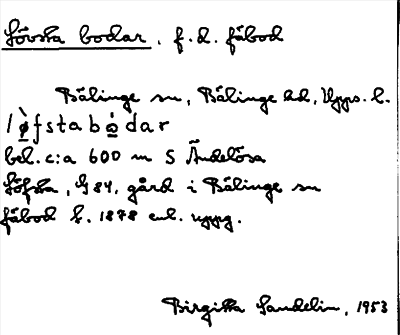 Lövsta bodar, f.d. fäbod
Bälinge sn, Bälinge hd, Upps. l.
lø̀fstabọ̀dar
bel. c:a 600 m S Ändelösa
Löfsta, G 84, gård i Bälinge sn
fäbod f. 1878 enl. uppg.
Birgitta Sandelin, 1953